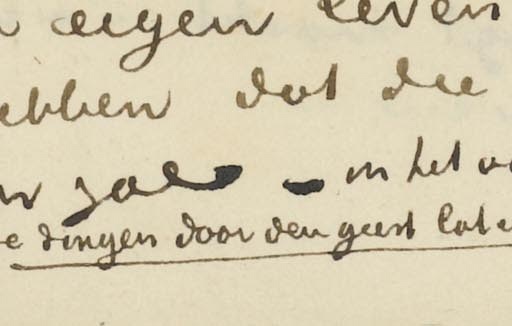 eigen leven
ebben dat die
zal - in het
e dingen door den geest late